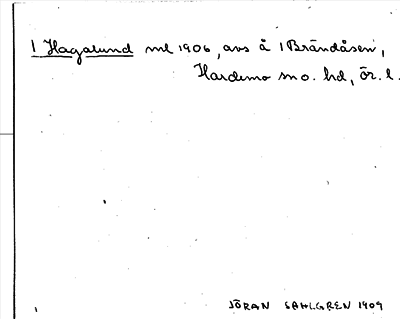 1 Hagalund ml 1906, avs å 1 Brändåsen,
Hardemo sn o. hd, Ör. l.
JÖRAN SAHLGREN 1909